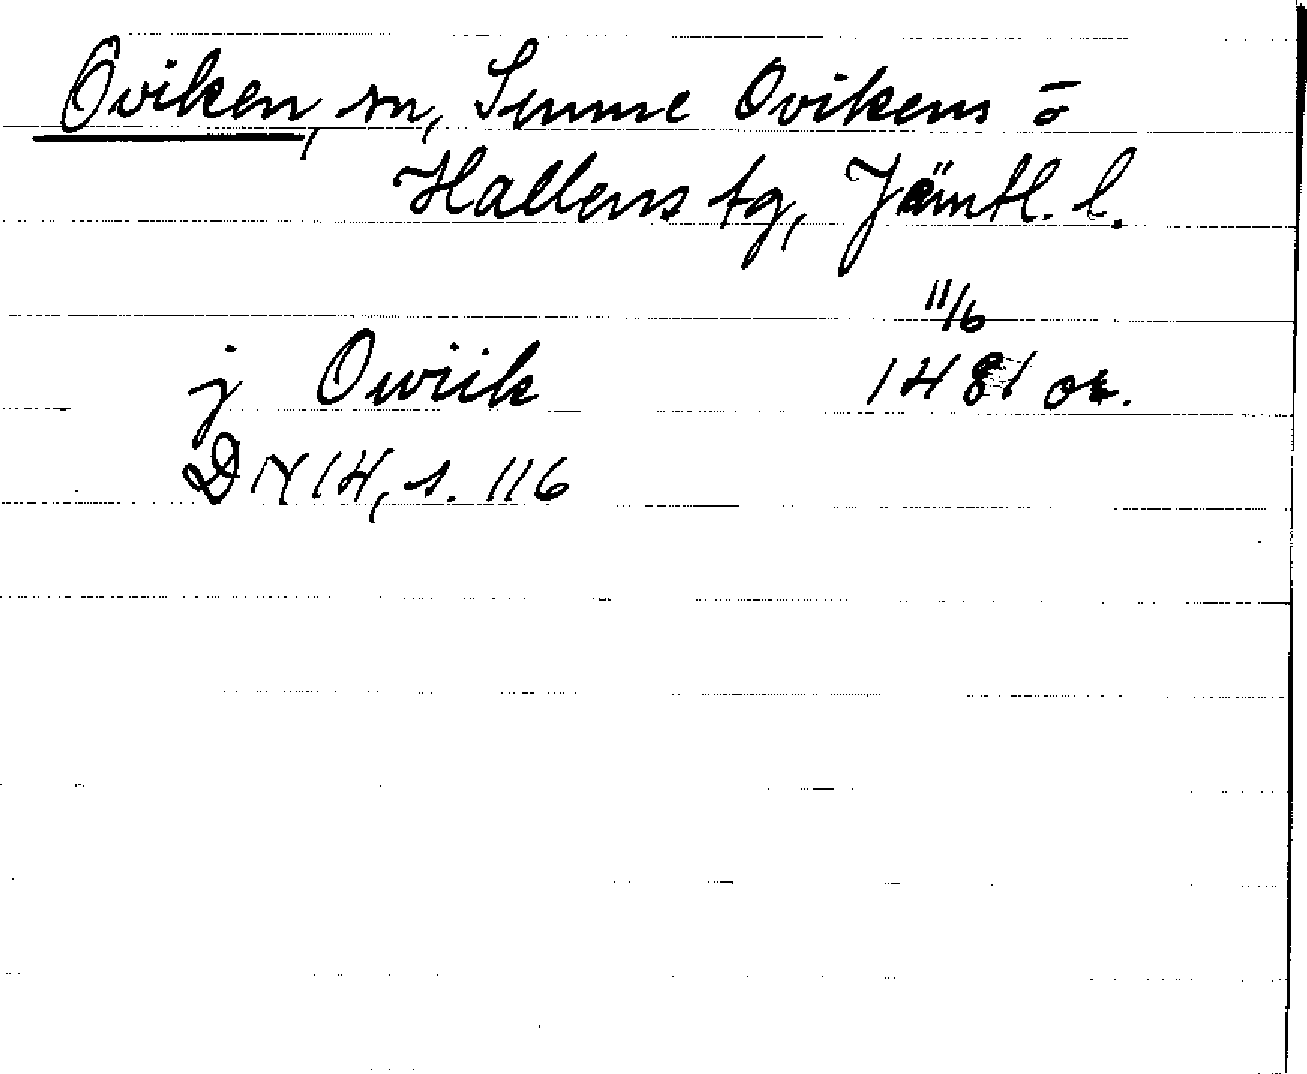 Oviken, sn, Sunne Ovikens o
Hallens tg, Jämtl. l.
11/6
j Owiik 1481 or.
DN 14, s. 116